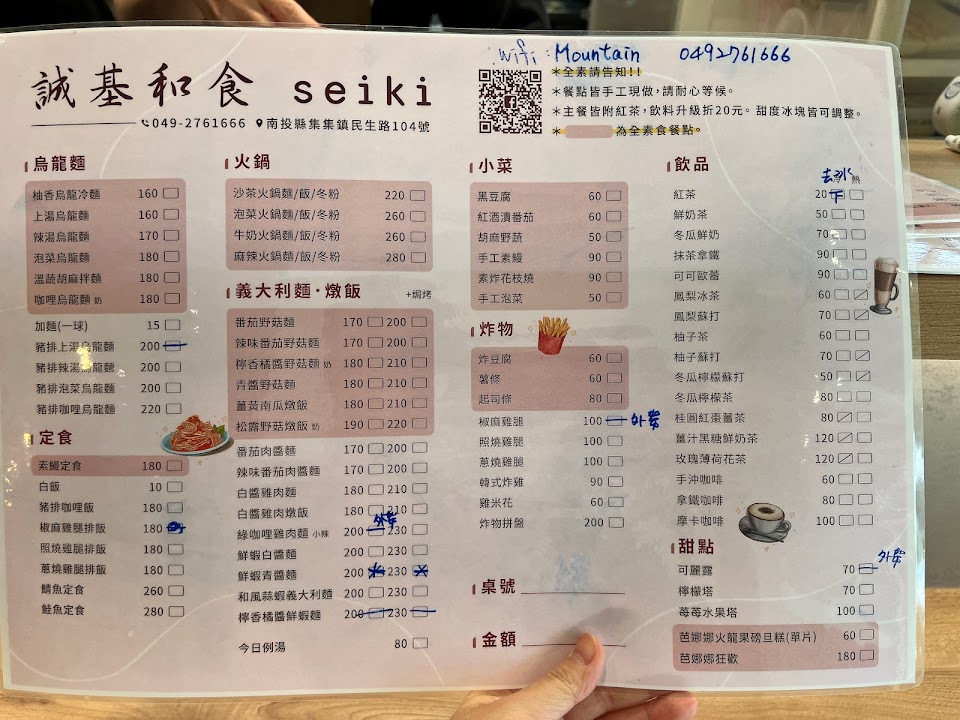 wifi: Mountain 0492761666
誠基和食 seiki
049-2761666 南投縣集集鎮民生路104號
*全素請告知!!
*餐點皆手工現做,請耐心等候。
*主餐皆附紅茶,飲料升級折20元。甜度冰塊皆可調整。
* 為全素食餐點。
烏龍麵
柚香烏龍冷麵 160
上湯烏龍麵 160
辣湯烏龍麵 170
泡菜烏龍麵 180
溫蔬胡麻拌麵 180
咖哩烏龍麵 奶 180
加麵(一球) 15
豬排上湯烏龍麵 200
豬排辣湯烏龍麵 200
豬排泡菜烏龍麵 200
豬排咖哩烏龍麵 220
定食
素鰻定食 180
白飯 10
豬排咖哩飯 180
椒麻雞腿排飯 180
照燒雞腿排飯 180
蔥燒雞腿排飯 180
鯖魚定食 260
鮭魚定食 280
火鍋
沙茶火鍋麵/飯/冬粉 220
泡菜火鍋麵/飯/冬粉 260
牛奶火鍋麵/飯/冬粉 260
麻辣火鍋麵/飯/冬粉 280
義大利麵·燉飯 +焗烤
番茄野菇麵 170 200
辣味番茄野菇麵 170 200
檸香橘醬野菇麵 奶 180 210
青醬野菇麵 180 210
薑黃南瓜燉飯 180 210
松露野菇燉飯 奶 190 220
番茄肉醬麵 170 200
辣味番茄肉醬麵 170 200
白醬雞肉麵 180 210
白醬雞肉燉飯 180 210
外帶
綠咖哩雞肉麵 小辣 200 230
鮮蝦白醬麵 200 230
鮮蝦青醬麵 200 230
和風蒜蝦義大利麵 200 230
檸香橘醬鮮蝦麵 200 230
今日例湯 80
小菜
黑豆腐 60
紅酒漬番茄 60
胡麻野蔬 50
手工素鰻 90
素炸花枝燒 90
手工泡菜 50
炸物
炸豆腐 60
薯條 60
起司條 80
椒麻雞腿 100 外帶
照燒雞腿 100
蔥燒雞腿 100
韓式炸雞 90
雞米花 60
炸物拼盤 200
桌號
金額
飲品
去冰 熱
紅茶 20
鮮奶茶 50
冬瓜鮮奶 70
抹茶拿鐵 90
可可歐蕾 90
鳳梨冰茶 60
鳳梨蘇打 70
柚子茶 60
柚子蘇打 70
冬瓜檸檬蘇打 50
冬瓜檸檬茶 80
桂圓紅棗薑茶 80
薑汁黑糖鮮奶茶 70
玫瑰薄荷花茶 120
手沖咖啡 60
拿鐵咖啡 80
摩卡咖啡 100
甜點
外帶
可麗露 70
檸檬塔 70
莓莓水果塔 100
芭娜娜火龍果磅旦糕(單片) 60
芭娜娜狂歡 180